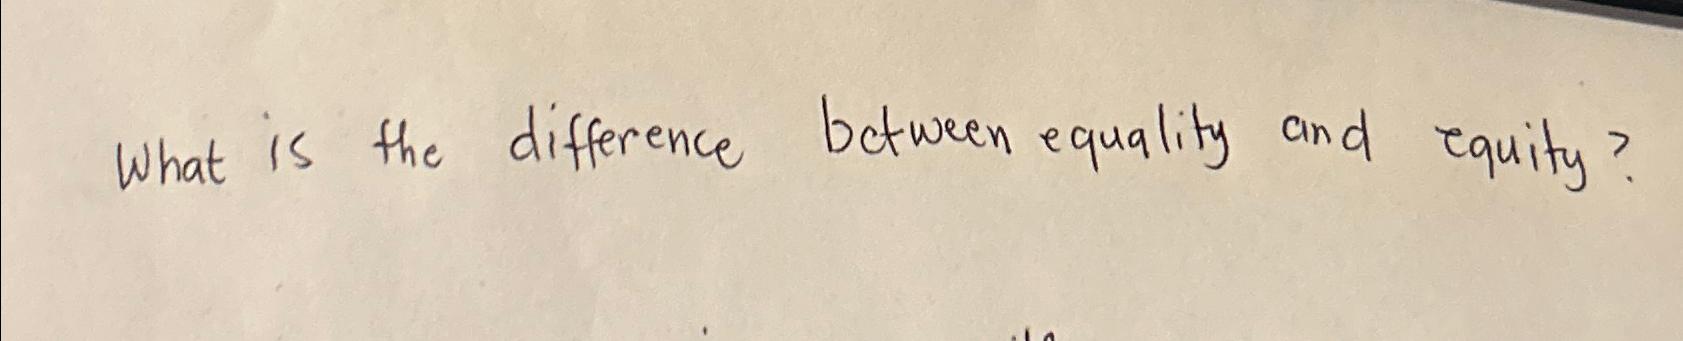 What is the difference between equality and equity?